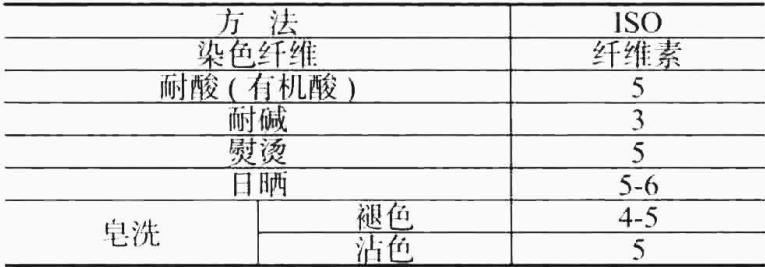 方 法 ISO
染色纤维 纤维素
耐酸(有机酸) 5
耐碱 3
熨烫 5
日晒 5-6
皂洗 褪色 4-5
沾色 5